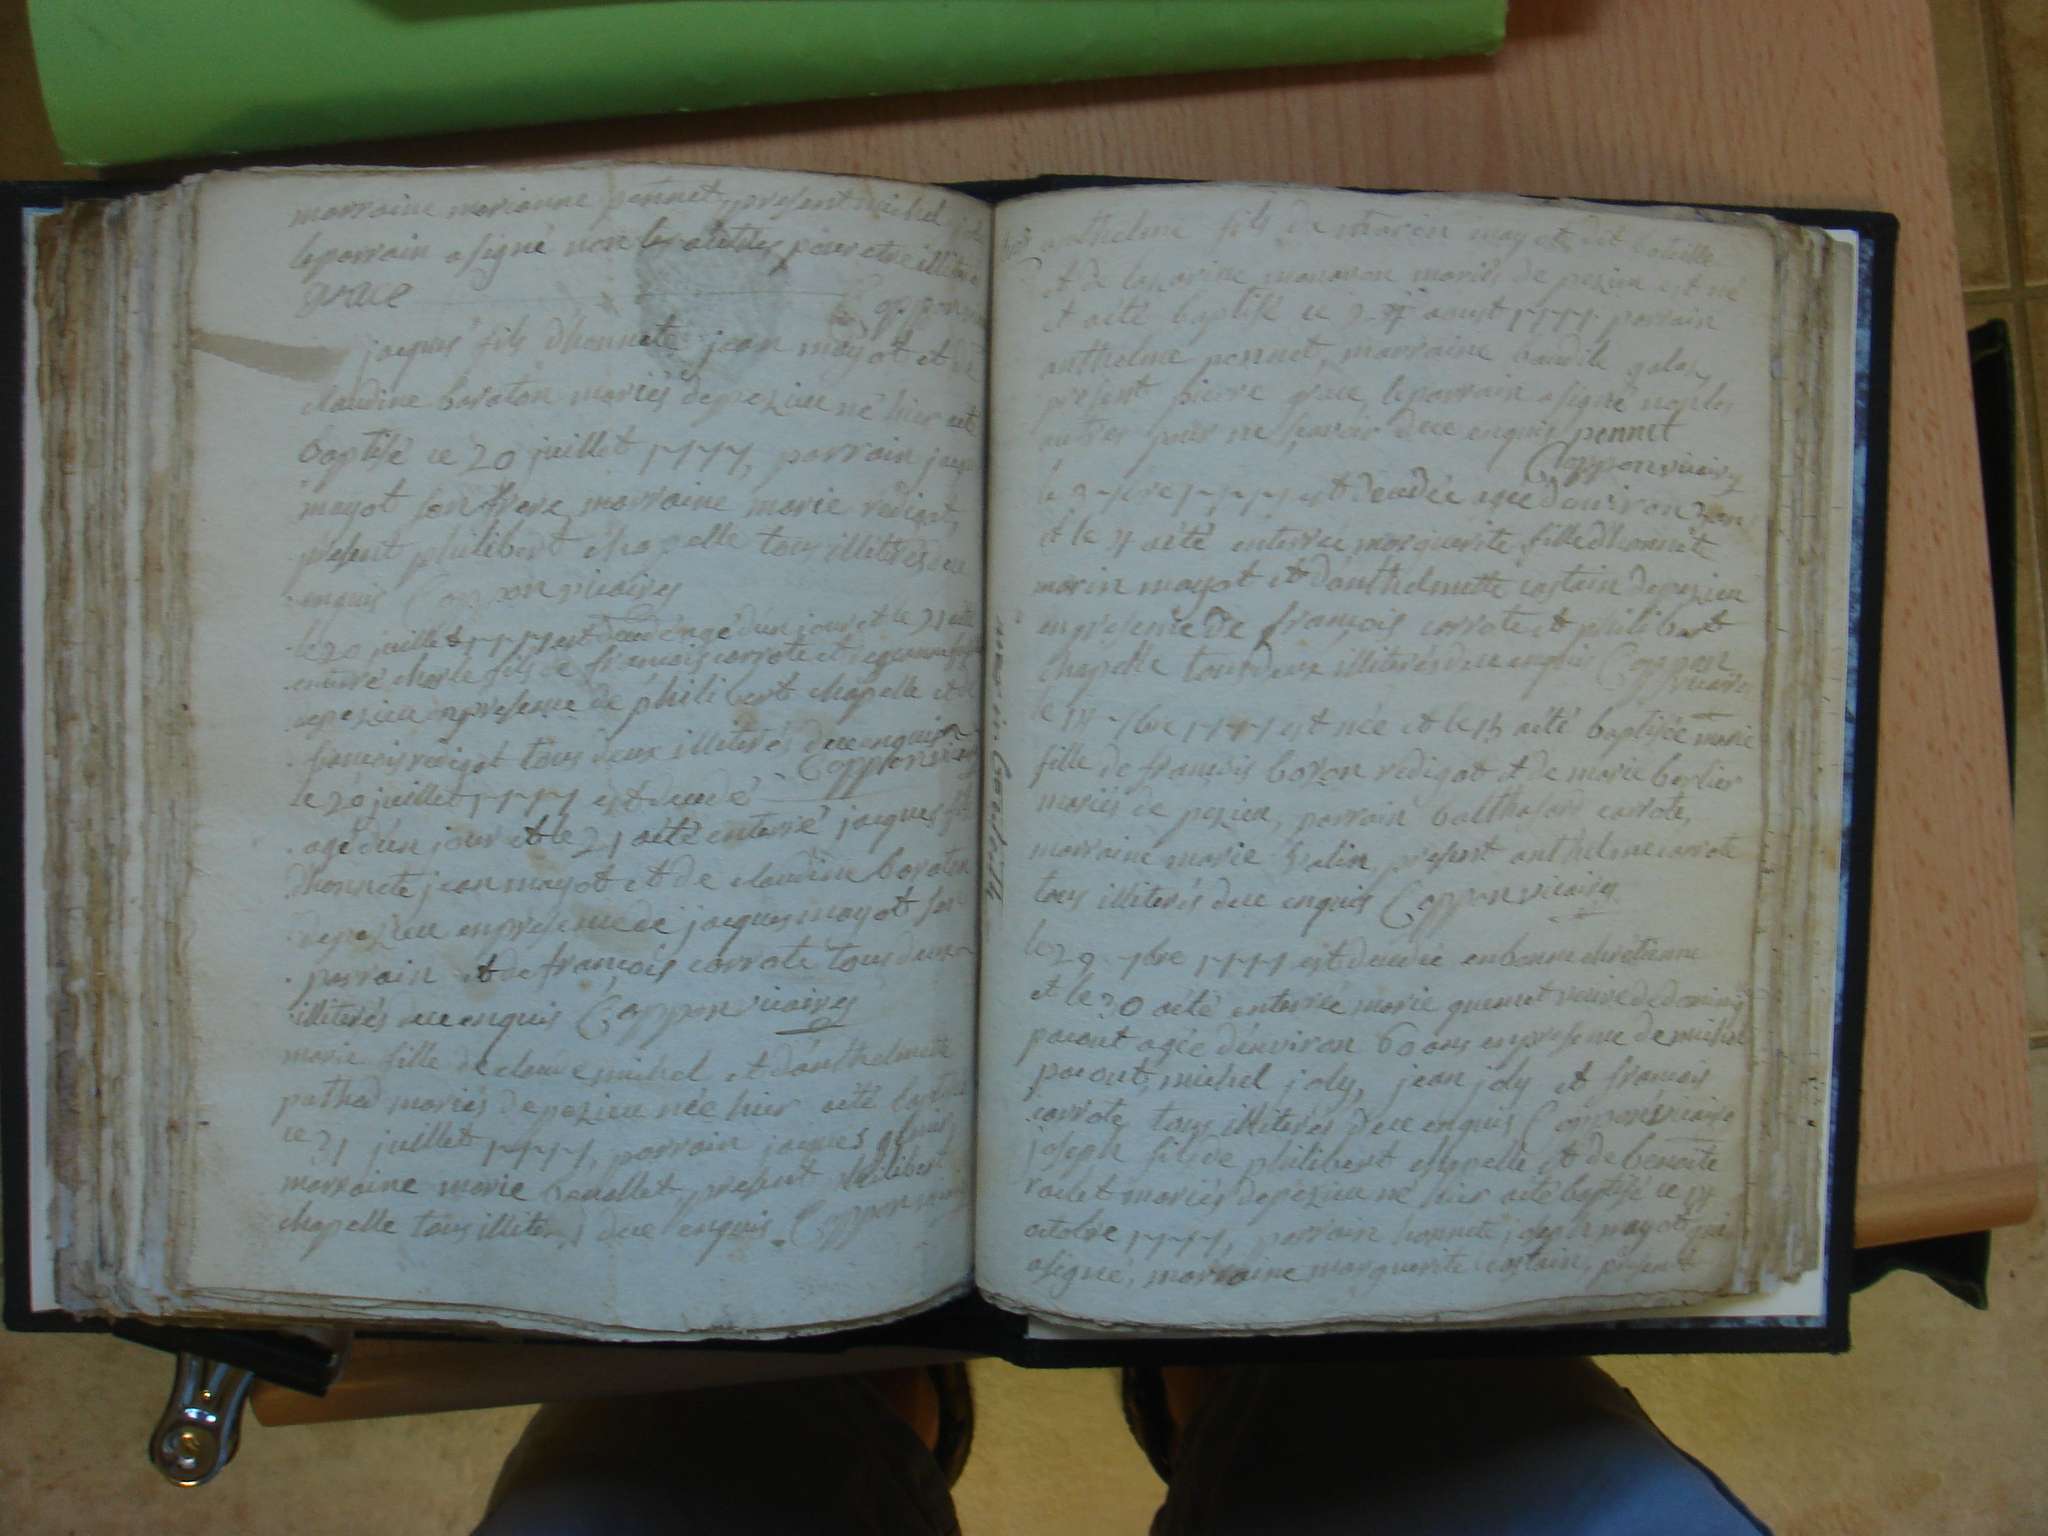 marraine marianne pennet, present michel joli
le parrain a signé non les autres pour etre illiteres
grace Copponvicaire
jacques fils d'honnete jean mayot et de
claudine baraton mariés de pezieu né hier a eté
baptisé ce 20 juillet 1777, parrain jacques
mayot son frere, marraine marie redigot,
present philibert chapelle tous illiterés de ce
enquis Copponvicaires
le 20 juillet 1777 est decedé agé d'un jour et le 21 a eté
enterré charle fils de françois corrote et
de pezieu en presence de philibert chapelle et de
françois redigot tous deux illiterés de ce enquis
Copponvicaire
le 20 juillet 1777 est decedé
agé d'un jour et le 21 a eté enterré jacques fils
d'honnete jean mayot et de claudine baraton
de pezieu en presence de jacques mayot son
parrain et de françois corrote tous deux
illiterés de ce enquis Copponvicaires
marie fille de claude michel et d'anthelmette
pothed mariés de pezieu née hier a eté baptisée
ce 31 juillet 1777, parrain jacques
marraine marie bouollet, present philibert
chapelle tous illiterés de ce enquis Copponvicaire
anthelme fils de marin mayot dit bataille
et de mariés de pezieu est né
et a eté baptisé ce 24 aoust 1777 parrain
anthelme pennet, marraine baudile
present pierre grace, le parrain a signé non les
autres pour ne sçavoir de ce enquis pennet
Copponvicaire
le 3 7bre 1777 est decedée agée d'environ 3 ans
et le 4 a eté enterrée marguerite fille d'honnete
marin mayot et d'anthelmette costain de pezieu
en presence de françois corrote et philibert
chapelle tous deux illiterés de ce enquis Coppon
vicaire
le 14 7bre 1777 est née et le 15 a eté baptisée marie
fille de françois bozon redigot et de marie berlier
mariés de pezieu, parrain balthasard corrote,
marraine marie present anthelme corrote
tous illiterés de ce enquis Copponvicaires
le 29 7bre 1777 est decedée en bonne chretienne
et le 30 a eté enterrée marie veuve de
parout agée d'environ 60 ans en presence de michel
parout, michel joly, jean joly et françois
corrote tous illiterés de ce enquis Copponvicaire
joseph fils de philibert chapelle et de benoite
mariés de pezieu né hier a eté baptisé ce 14
octobre 1777, parrain honnete joseph mayot qui
a signé, marraine marguerite costain, present